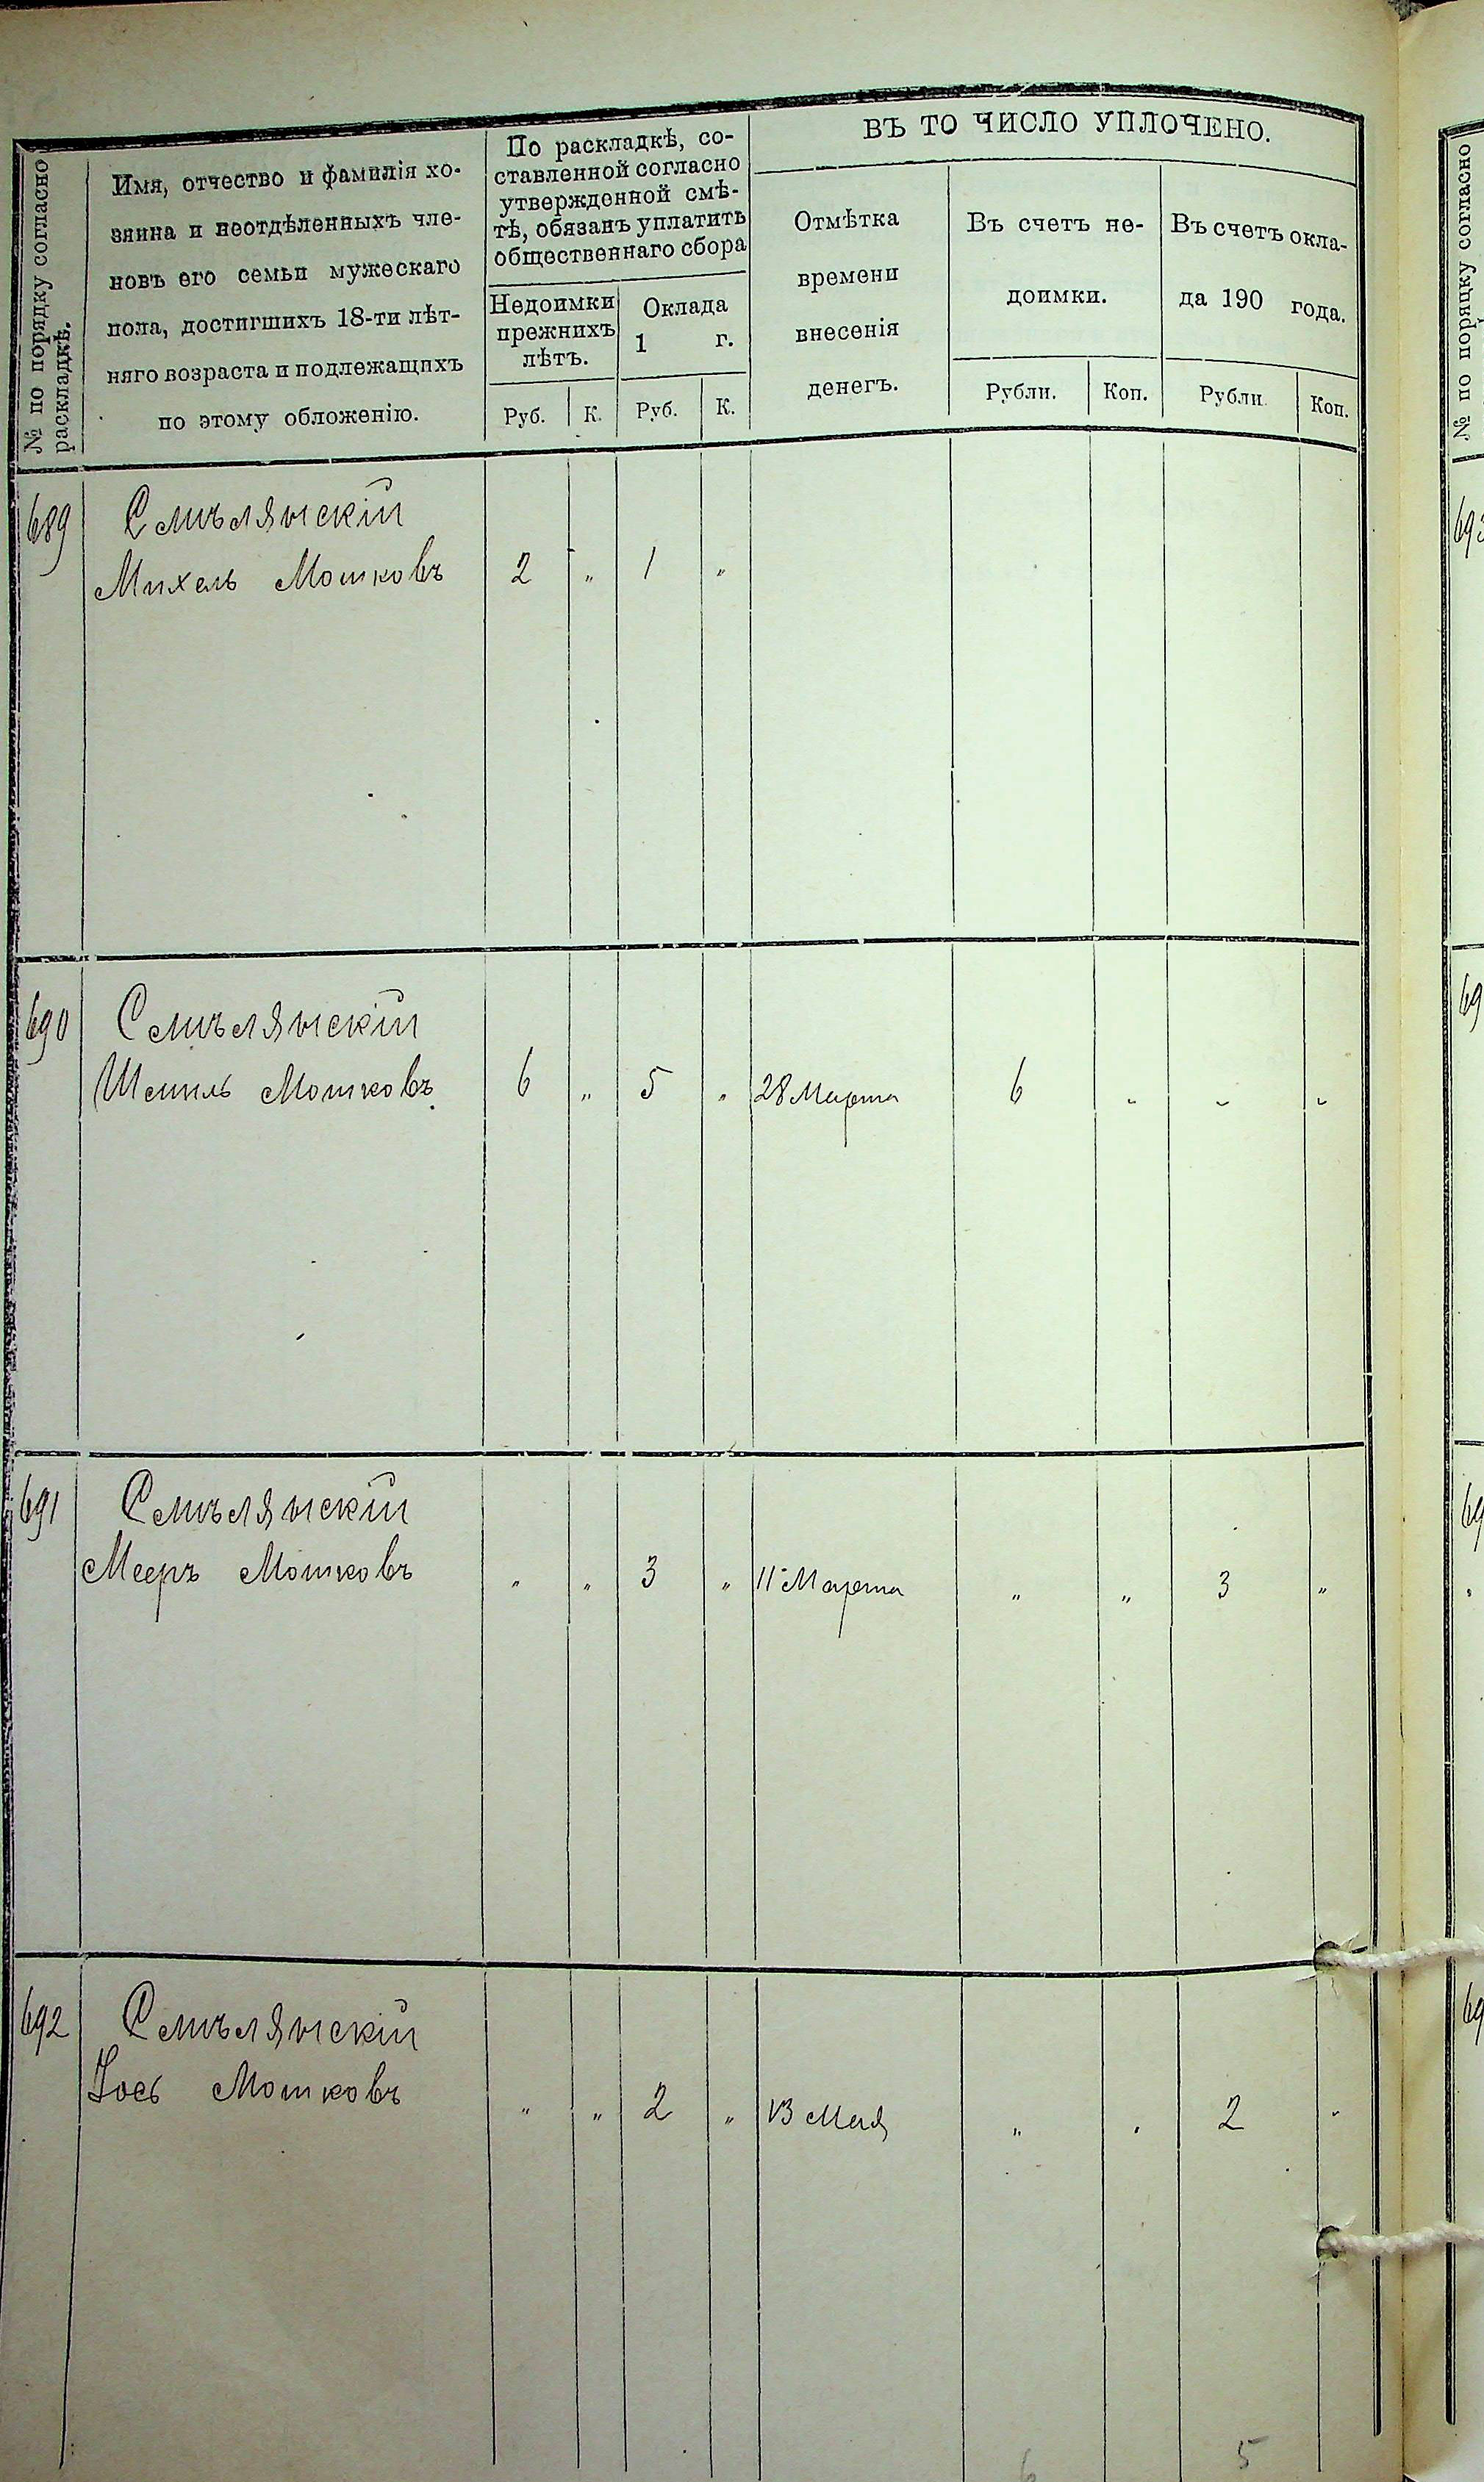 № по порядку согласно
раскладкѣ.
Имя, отчество и фамилія хо-
зяина и неотдѣленныхъ чле-
новъ его семьи мужескаго
пола, достигшихъ 18-ти лѣт-
няго возраста и подлежащихъ
по этому обложенію.
По раскладкѣ, со-
ставленной согласно
утвержденной смѣ-
тѣ, обязанъ уплатить
общественнаго сбора
Недоимки
прежнихъ
лѣтъ.
Оклада
1 г.
Руб. К. Руб. К.
ВЪ ТО ЧИСЛО УПЛОЧЕНО.
Отмѣтка
времени
внесенія
денегъ.
Въ счетъ не-
доимки.
Въ счетъ окла-
да 190 года.
Рубли. Коп. Рубли. Коп.
689 Смѣлянскій
Михель Мошковъ 2 „ 1 „
690 Смѣлянскій
Шмиль Мошковъ 6 „ 5 „ 28 Марта 6 „ „ „
691 Смѣлянскій
Мееръ Мошковъ „ „ 3 „ 11 Марта „ „ 3 „
692 Смѣлянскій
Іось Мошковъ „ „ 2 „ 13 Мая „ „ 2 „
6 5
№ по порядку согласно